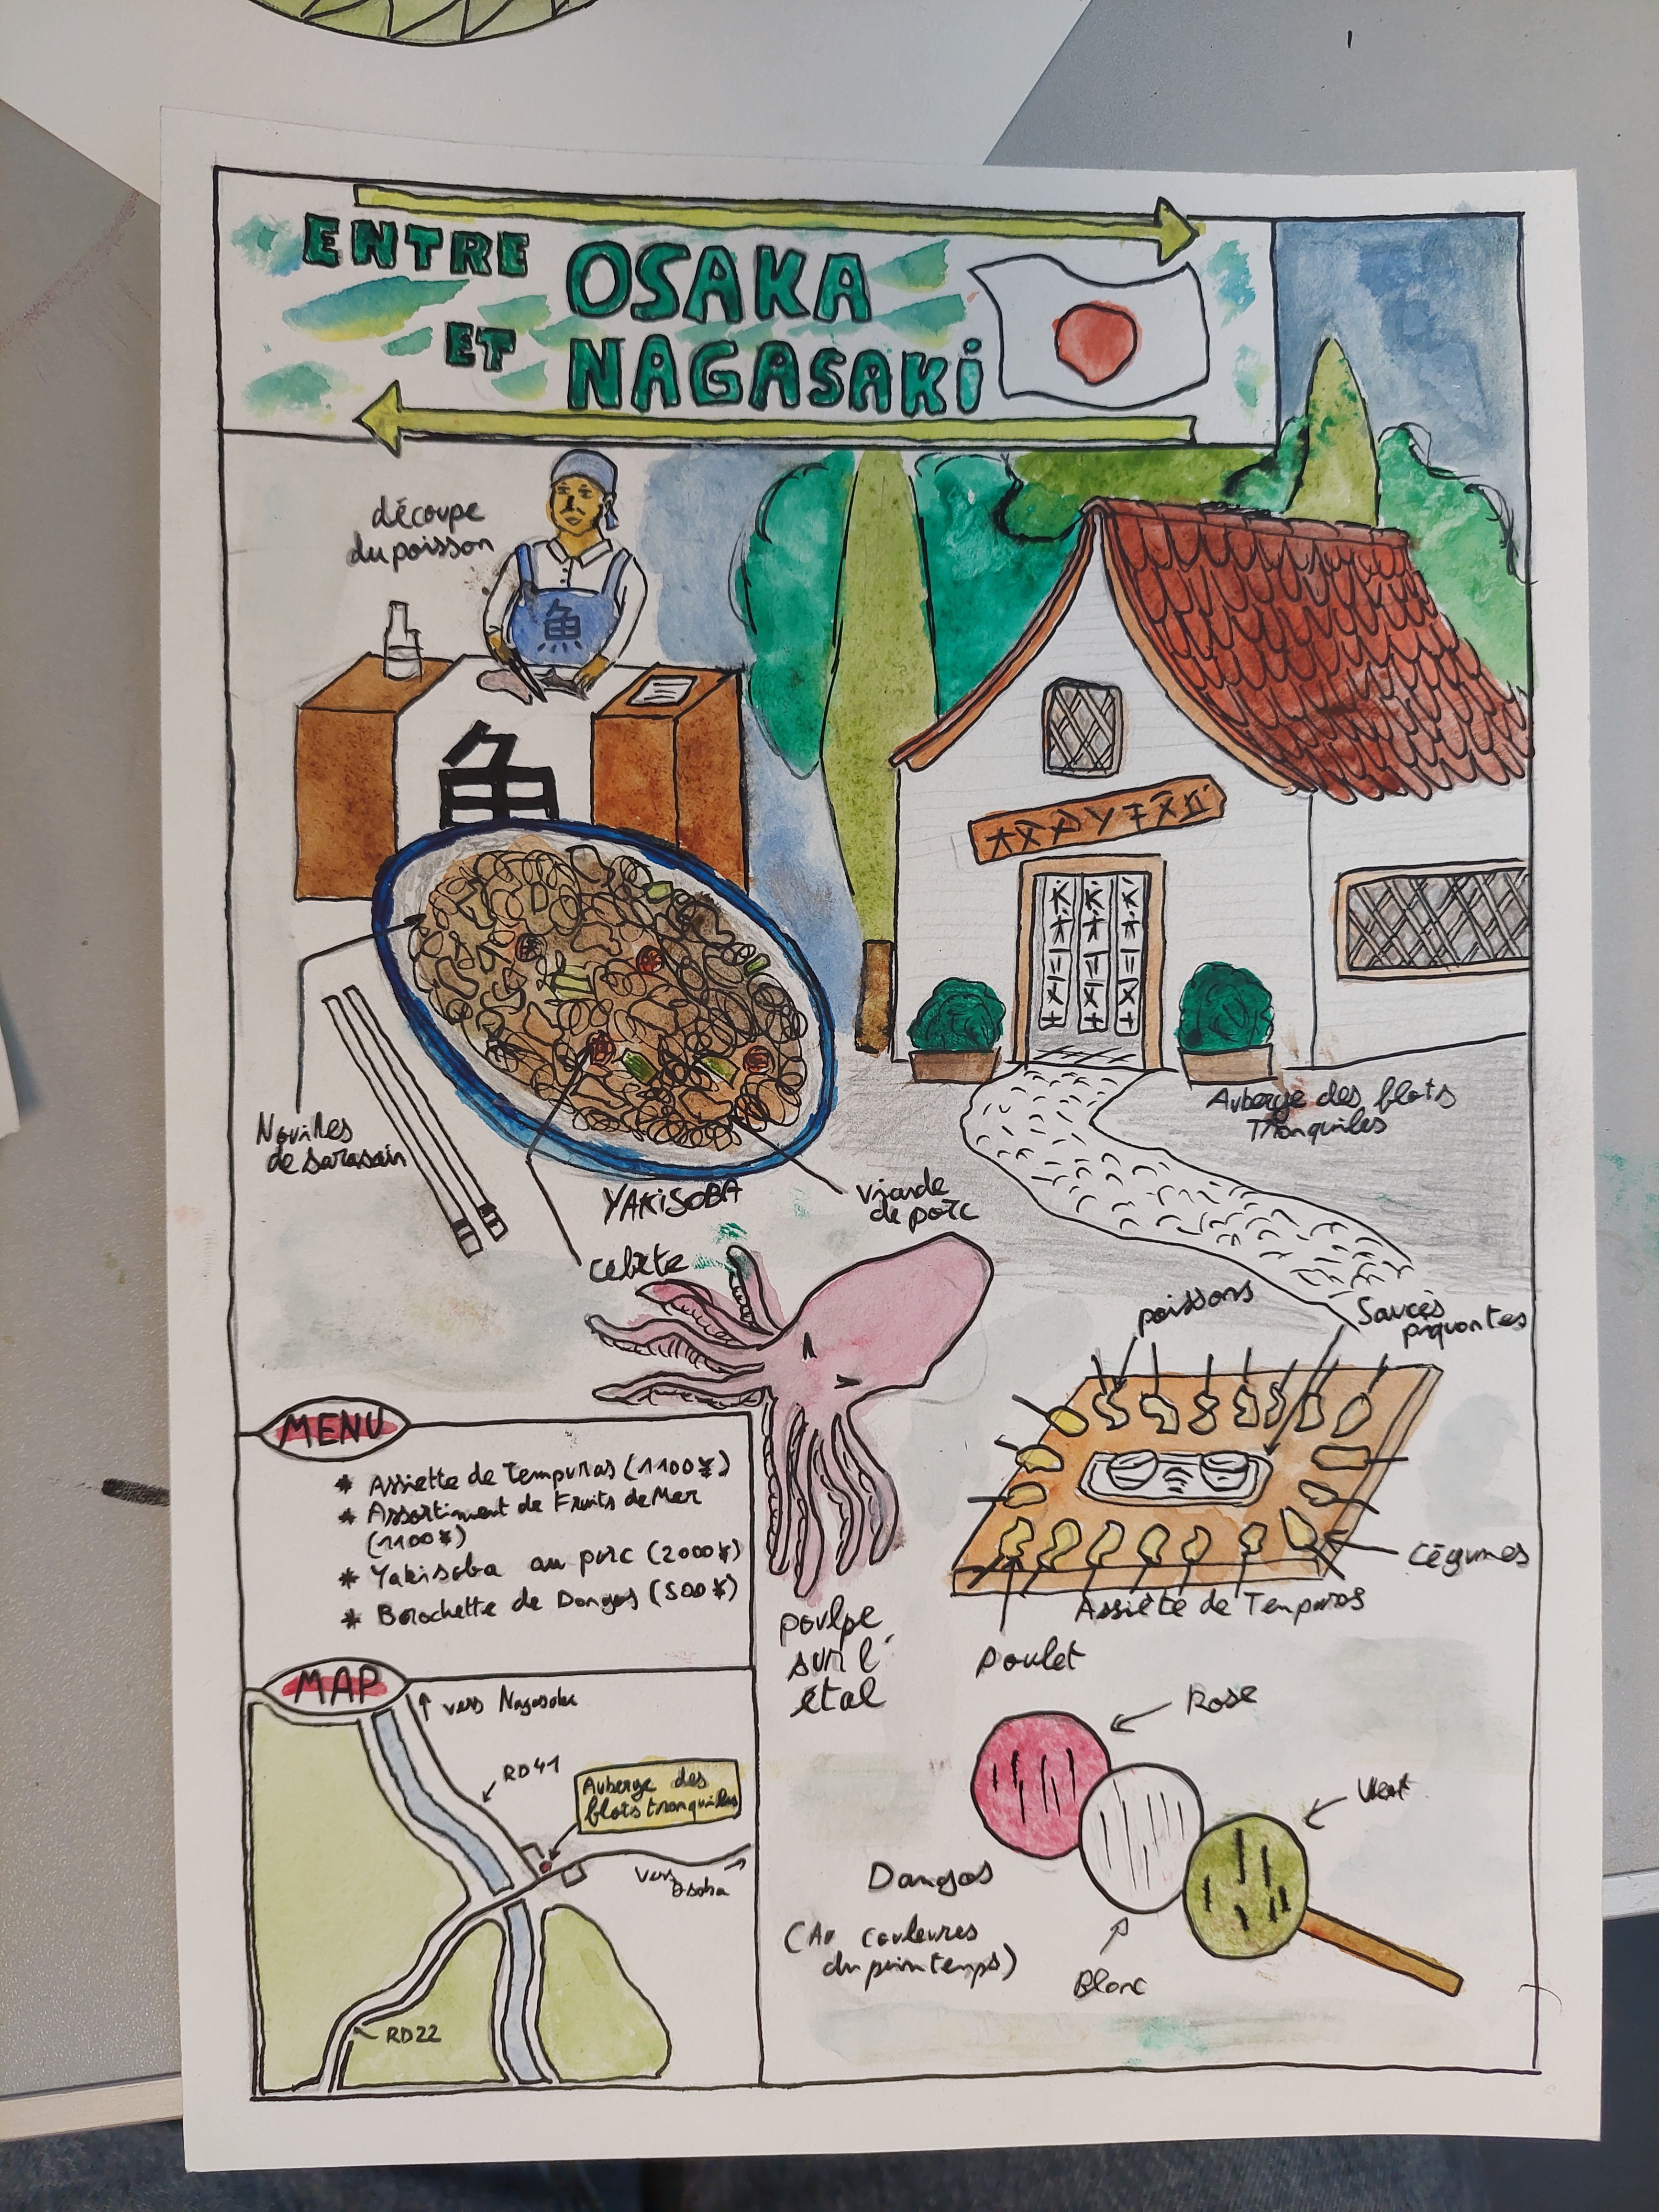 ENTRE OSAKA
ET NAGASAKi
découpe
du poisson
魚
魚
Nouilles
de sarasain
YAKiSOBA
Viande
de porc
Cebète
Auberge des flots
Tranquiles
poissons
Sauces
piquantes
Légumes
Assiète de Tempuras
Poulet
poulpe
sur l'
étal
MENU
* Assiette de Tempuras (1100¥)
* Assortiment de Fruits de Mer
(1100¥)
* Yakisoba au porc (2000¥)
* Borochette de Dangos (500¥)
MAP
↑ vers
RD41
Auberge des
flots tranquilles
vers
RD22
Rose
Vert
Blanc
Dangos
(Au couleures
du printemps)